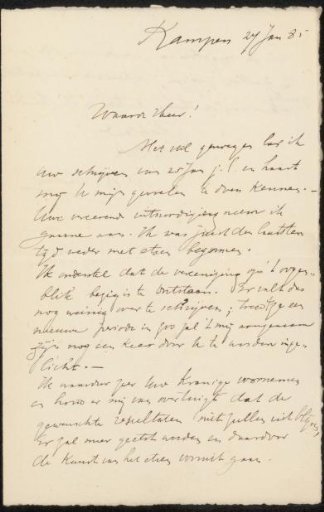 Kampen 27 Jan 85
Waarde Heer!
Met veel genoegen las ik
uw schrijven van 25 Jan j.l. en haast
mij u mijn gevoelen te doen kennen. —
Uwe vereerende uitnoodiging neem ik
gaarne aan. Ik was juist den laatsten
tijd weder met etsen begonnen.
Ik onderstel dat de vereeniging op 't oogen-
blik bezig is te ontstaan. Er valt dus
nog weinig over te schrijven; treedt ze een
nieuwe periode in zoo zal 't mij aangenaam
zijn nog een keer door u te worden inge-
licht. —
Ik waardeer zeer Uw voornemen
en houd er mij van overtuigd dat de
gewenschte resultaten niet zullen uitblijven,
Er zal meer geëtst worden en daardoor
de kunst van het etsen vooruit gaan.